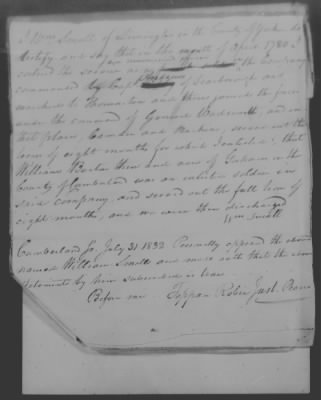 I Wm Smith of Limington in the County of York do
testify and say that in the month of April 1780 I
entered the service as
commanded by Capt of Scarborough and
marched to Thomaston and there joined the forces
under the command of General Wadsworth, and in
that place, Camden and Machias, served out the
term of eight months for which I enlisted; that
William Barton then and now of in the
County of Cumberland was an enlisted soldier in
said company, and served out the full term of
eight months, and we were then discharged
Wm Smith
Cumberland Ss. July 31 1832 Personally appeared the above
named William Smith and made oath that the above
by him subscribed is true.
Before me Toppan Robie Just. Peace